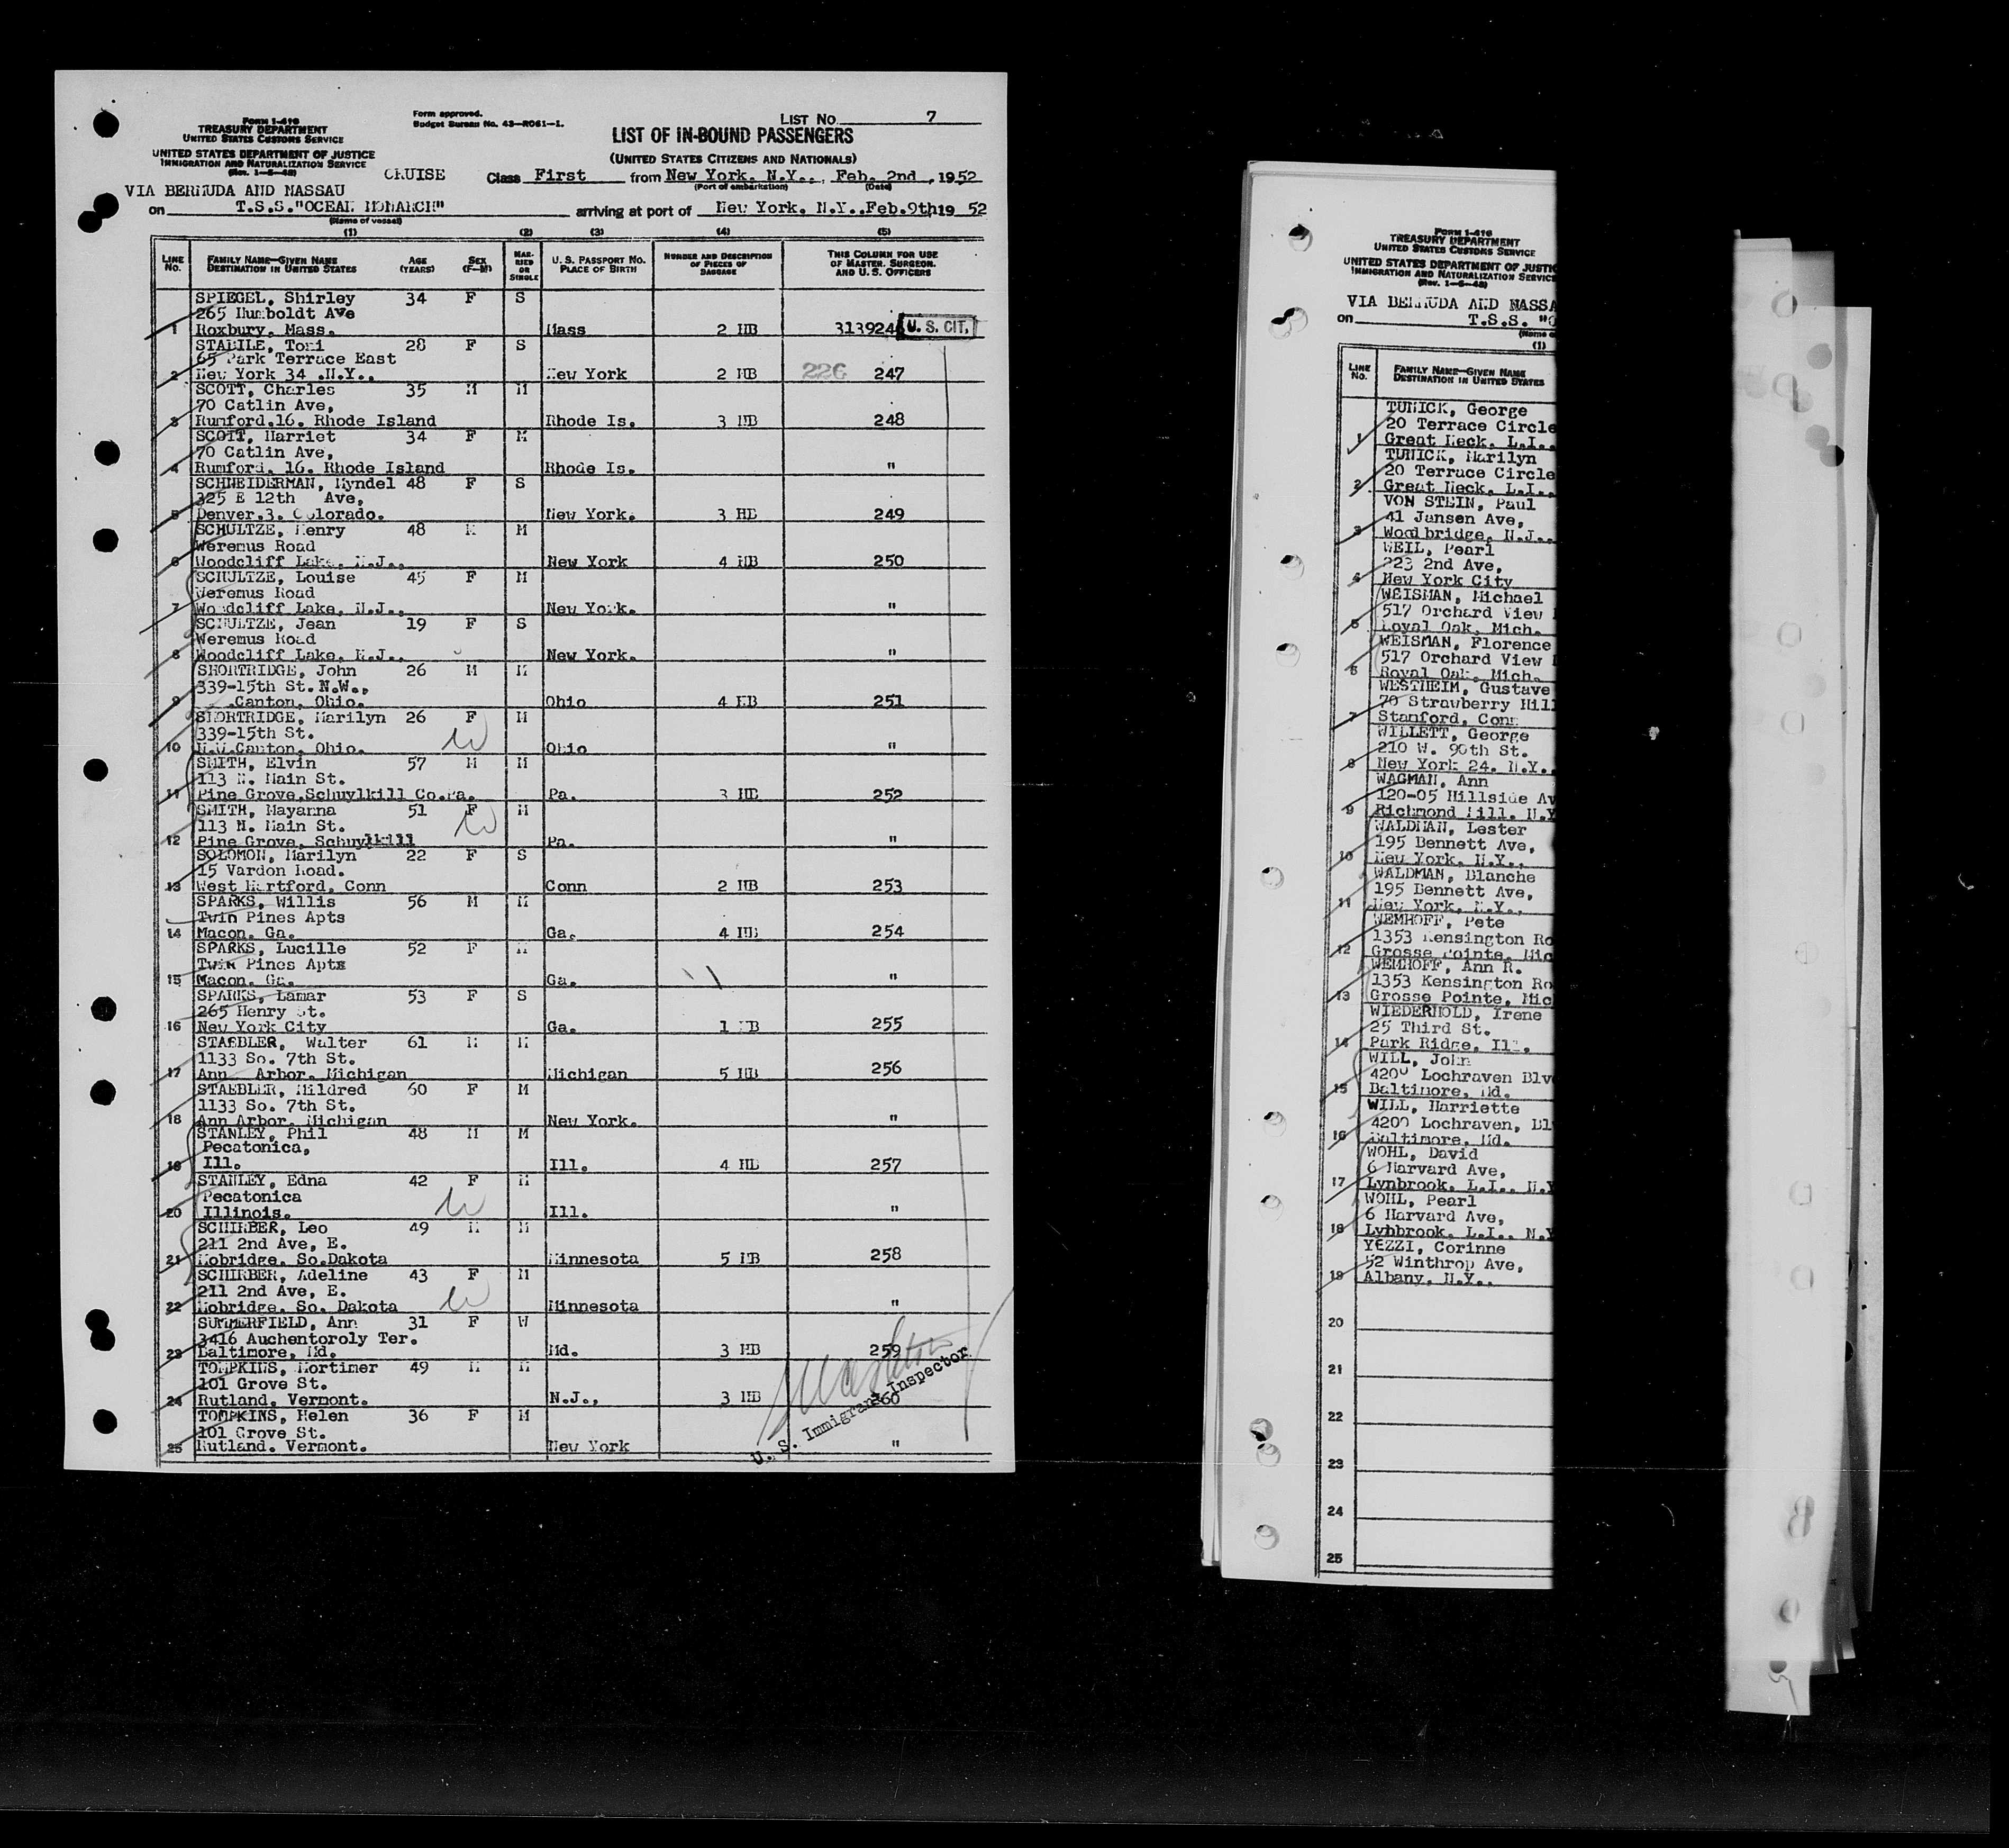 Form I-416
TREASURY DEPARTMENT
UNITED STATES CUSTOMS SERVICE
UNITED STATES DEPARTMENT OF JUSTICE
IMMIGRATION AND NATURALIZATION SERVICE
(Rev. 1-5-48)
Form approved.
Budget Bureau No. 43-R061-1.
LIST No. 7
LIST OF IN-BOUND PASSENGERS
(UNITED STATES CITIZENS AND NATIONALS)
CRUISE Class First from New York. N.Y.., Feb. 2nd , 1952
(Port of embarkation) (Date)
VIA BERMUDA AND NASSAU
on T.S.S."OCEAN MONARCH" arriving at port of New York. N.Y..Feb.9th19 52
(Name of vessel)
(1) (2) (3) (4) (5)
LINE No. FAMILY NAME—GIVEN NAME DESTINATION IN UNITED STATES AGE (YEARS) SEX (F-M) MARRIED OR SINGLE U. S. PASSPORT NO. PLACE OF BIRTH NUMBER AND DESCRIPTION OF PIECES OF BAGGAGE THIS COLUMN FOR USE OF MASTER, SURGEON, AND U. S. OFFICERS
SPIEGEL, Shirley 34 F S
265 Humboldt Ave
1 Roxbury. Mass. Mass 2 HB 313924 U. S. CIT.
STABILE, Toni 28 F S
65 Park Terrace East
2 New York 34 .N.Y.. New York 2 HB 226 247
SCOTT, Charles 35 M M
70 Catlin Ave,
3 Rumford.16. Rhode Island Rhode Is. 3 HB 248
SCOTT, Harriet 34 F M
70 Catlin Ave,
4 Rumford. 16. Rhode Island Rhode Is. "
SCHNEIDERMAN, Hyndel 48 F S
325 E 12th Ave,
5 Denver.3. Colorado. New York. 3 HB 249
SCHULTZE, Henry 48 M M
Weremus Road
6 Woodcliff Lake. N.J.. New York 4 HB 250
SCHULTZE, Louise 45 F M
Weremus Road
7 Woodcliff Lake, N.J.. New York. "
SCHULTZE, Jean 19 F S
Weremus Road
8 Woodcliff Lake. N.J.. New York. "
SHORTRIDGE, John 26 M M
339-15th St. N.W.,
9 Canton, Ohio. Ohio 4 HB 251
SHORTRIDGE, Marilyn 26 F M
339-15th St.
10 N.W.Canton. Ohio. Ohio "
SMITH, Elvin 57 M M
113 N. Main St.
11 Pine Grove.Schuylkill Co.Pa. Pa. 3 HB 252
SMITH, Mayanna 51 F M
113 N. Main St.
12 Pine Grove. Schuylkill Pa. "
SOLOMON, Marilyn 22 F S
15 Vardon Road.
13 West Hartford. Conn Conn 2 HB 253
SPARKS, Willis 56 M M
Twin Pines Apts
14 Macon. Ga. Ga. 4 HB 254
SPARKS, Lucille 52 F M
Twin Pines Apts
15 Macon. Ga. Ga. "
SPARKS, Lamar 53 F S
265 Henry St.
16 New York City Ga. 1 HB 255
STAEBLER, Walter 61 M M
1133 So. 7th St.
17 Ann Arbor. Michigan Michigan 5 HB 256
STAEBLER, Mildred 60 F M
1133 So. 7th St.
18 Ann Arbor. Michigan New York. "
STANLEY, Phil 48 M M
Pecatonica,
19 Ill. Ill. 4 HB 257
STANLEY, Edna 42 F M
Pecatonica
20 Illinois. Ill. "
SCHIRBER, Leo 49 M M
211 2nd Ave, E.
21 Mobridge. So.Dakota Minnesota 5 HB 258
SCHIRBER, Adeline 43 F M
211 2nd Ave, E.
22 Mobridge. So. Dakota Minnesota "
SUMMERFIELD, Ann 31 F W
3416 Auchentoroly Ter.
23 Baltimore, Md. Md. 3 HB 259
TOMPKINS, Mortimer 49 M M
101 Grove St.
24 Rutland. Vermont. N.J., 3 HB 260
TOMPKINS, Helen 36 F M
101 Grove St.
25 Rutland. Vermont. New York "
U. S. Immigrant Inspector
Form I-416
TREASURY DEPARTMENT
UNITED STATES CUSTOMS SERVICE
UNITED STATES DEPARTMENT OF JUSTIC
IMMIGRATION AND NATURALIZATION SERVICE
(Rev. 1-5-48)
VIA BERMUDA AND NASSA
on T.S.S. "O
(Name o
(1)
LINE No. FAMILY NAME—GIVEN NAME DESTINATION IN UNITED STATES
TUNICK, George
20 Terrace Circle
1 Great Neck. L.I..
TUNICK, Marilyn
20 Terrace Circle
2 Great Neck. L.I..
VON STEIN, Paul
41 Jansen Ave,
3 Woodbridge, N.J..
WEIL, Pearl
223 2nd Ave,
4 New York City
WEISMAN, Michael
517 Orchard View
5 Loyal Oak. Mich.
WEISMAN, Florence
517 Orchard View
6 Royal Oak. Mich.
WESTHEIM, Gustave
70 Strawberry Hill
7 Stamford, Conn
WILLETT, George
210 W. 90th St.
8 New York 24. N.Y..
WAGMAN, Ann
120-05 Hillside Av
9 Richmond Hill. N.Y
WALDMAN, Lester
195 Bennett Ave,
10 New York. N.Y..
WALDMAN, Blanche
195 Bennett Ave,
11 New York, N.Y..
WEMHOFF, Pete
1353 Kensington Ro
12 Grosse Pointe. Mic
WEMHOFF, Ann R.
1353 Kensington Ro
13 Grosse Pointe, Mic
WIEDERHOLD, Irene
25 Third St.
14 Park Ridge, Ill.
WILL, John
4200 Lochraven Blv
15 Baltimore, Md.
WILL, Harriette
4200 Lochraven, Bl
16 Baltimore, Md.
WOHL, David
6 Harvard Ave,
17 Lynbrook. L.I.. N.Y
WOHL, Pearl
6 Harvard Ave,
18 Lynbrook. L.I.. N.Y
YEZZI, Corinne
52 Winthrop Ave,
19 Albany, N.Y..
20
21
22
23
24
25